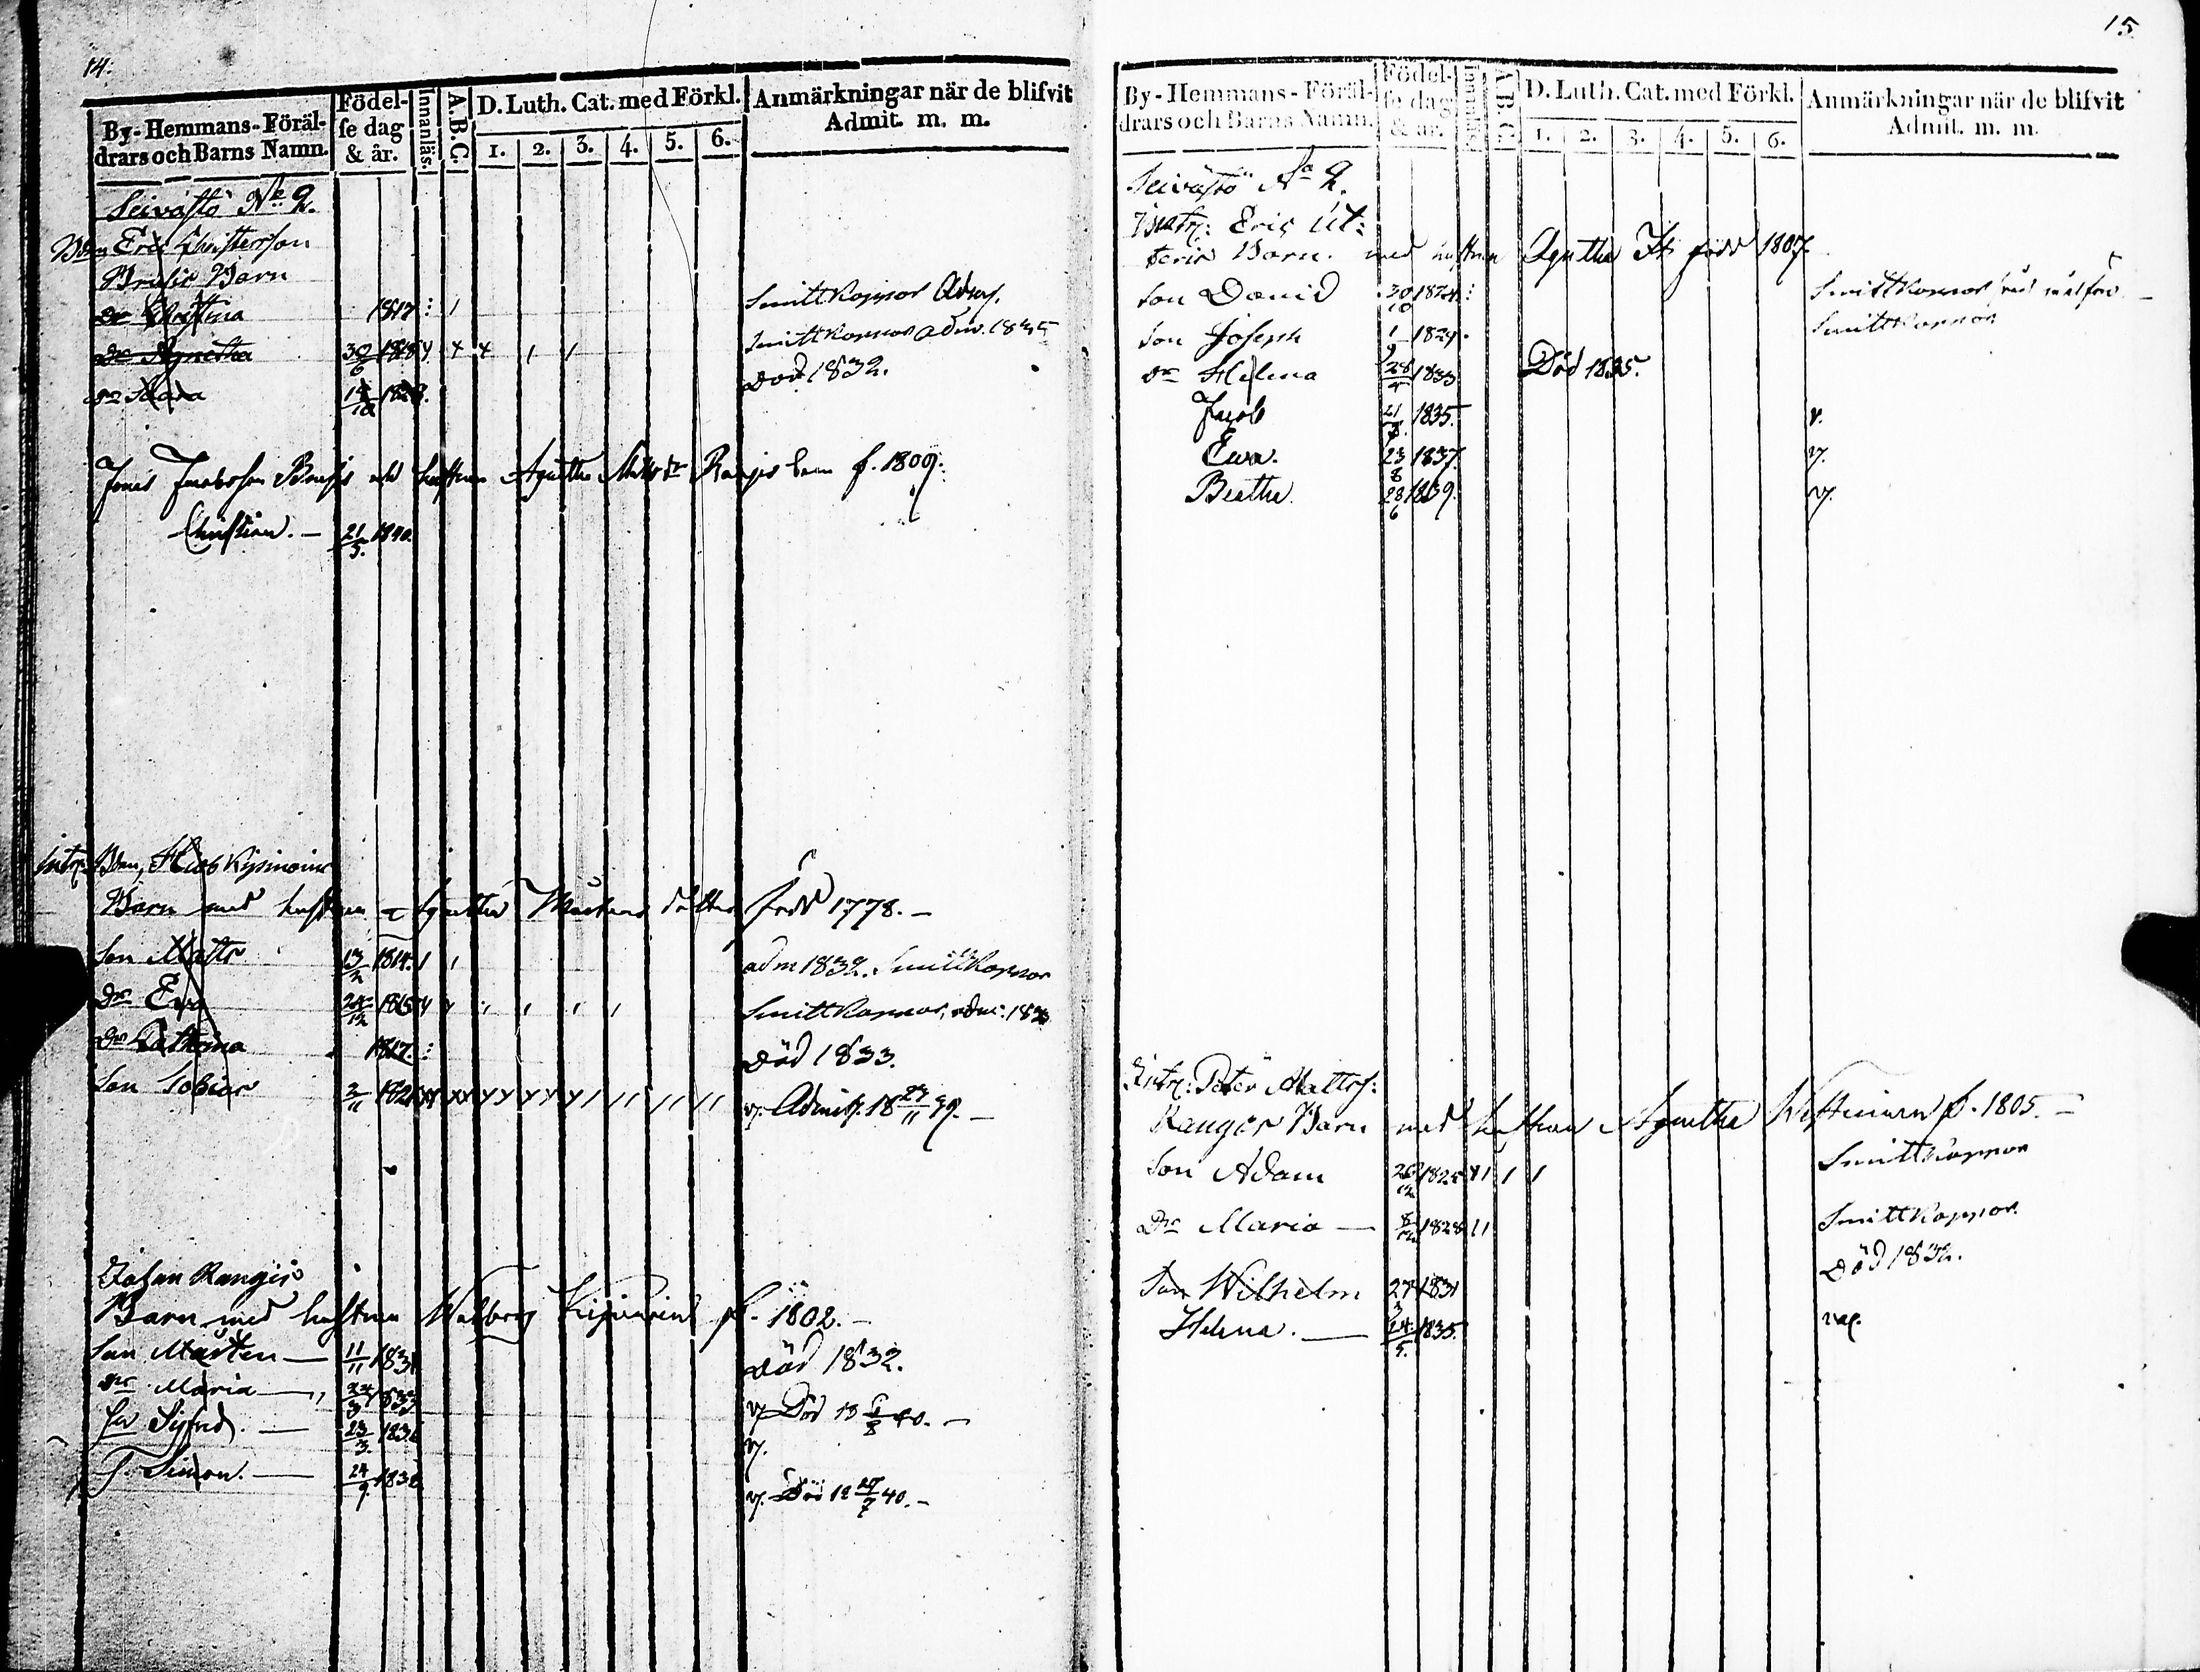 14.
By-Hemmans-Föräl-
drars och Barns Namn.
Födel-
se dag
& år.
Innanläs.
A.B.C.
D. Luth. Cat. med Förkl.
1. 2. 3. 4. 5. 6.
Anmärkningar när de blifvit
Admit. m. m.
Seivästö No 2.
Bdn Eric Christersson
Brusis Barn
Dr Christina 1817 Smittkoppor Adm.
Dr Agnetha 30/6 1818 Smittkoppor adm. 1835
Dr 18/10 Död 1832.
Jonas Jacobsson Brusis och hustrun Agnetha Matts dr Rangis barn f. 1809.
Christian. — 21/5. 1840.
Intr. Bdn, Hiob Kipinoinis
Barn med hustrun Agnetha Mårtens dotter född 1778. —
Son Matts 13/2 1814. adm 1832. Smittkoppor
Dr Eva 24/12 1815 Smittkoppor, adm:
Dr Catharina 1817. Död 1833.
Son Tobias 2/11 1821 v. Admitt. 18 24/11 39. —
Johan Rangis
Barn med hustrun Walborg f. 1802. —
Son Mårten — 11/11 1831 Död 1832.
Dr Maria — 24/3 1833 v. Död 18 40. —
Sigfrid. — 23/3. 1836 v.
Simon. — 24/9 1838 v. Död 18 27/7 40. —
15.
By-Hemmans-Föräl-
drars och Barns Namn.
Födel-
se dag
& år.
Innanläs.
A.B.C.
D. Luth. Cat. med Förkl.
1. 2. 3. 4. 5. 6.
Anmärkningar när de blifvit
Admit. m. m.
Seivästö No 2.
Eric Ut:
teris Barn. med hustrun Agnetha född 1807.
Son David 30/10 1824. Smittkoppor
Son Joseph 1/9 1829. Smittkoppor
Dr Helena 28/4 1833 Död 1835.
Jacob 21 1835. v.
Eva. 23/8 1837. v.
Beatha. 28/6 1839. v.
Intr: Peter Mattss:
Rangis Barn med hustrun Agnetha f. 1805. —
Son Adam 26/12 1825 Smittkoppor
Dr Maria — 1828 Smittkoppor.
Son Wilhelm 27/3 1831 Död 1832.
Helena. — 14/5. 1835. vac.